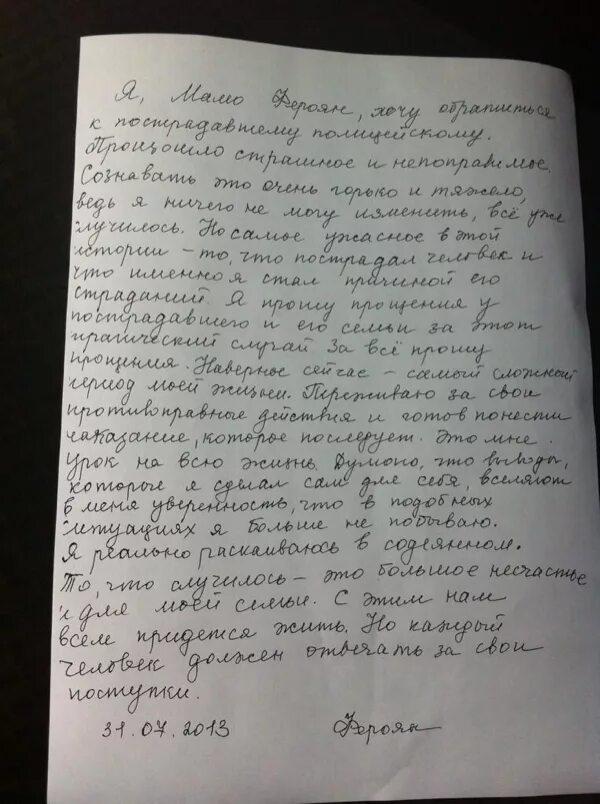 Я, Мамо Фероян, хочу обратиться
к пострадавшему полицейскому.
Произошло страшное и непоправимое.
Сознавать это очень горько и тяжело,
ведь я ничего не могу изменить, всё уже
случилось. Но самое ужасное в этой
истории – то, что пострадал человек и
что именно я стал причиной его
страданий. Я прошу прощения у
пострадавшего и его семьи за этот
трагический случай. За всё прошу
прощения. Наверное сейчас – самый сложный
период моей жизни. Переживаю за свои
противоправные действия и готов понести
наказание, которое последует. Это мне
урок на всю жизнь. Думаю, что выводы,
которые я сделал сам для себя, вселяют
в меня уверенность, что в подобных
ситуациях я больше не побываю.
Я реально раскаиваюсь в содеянном.
То, что случилось – это большое несчастье
и для моей семьи. С этим нам
всем придется жить. Но каждый
человек должен отвечать за свои
поступки.
31.07.2013 Фероян